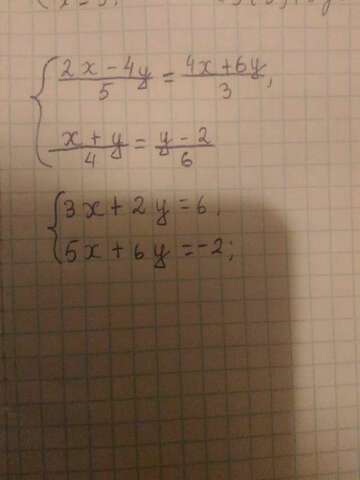 (2x-4y)/5 = (4x+6y)/3,
(x+y)/4 = (y-2)/6
3x+2y=6,
5x+6y=-2;